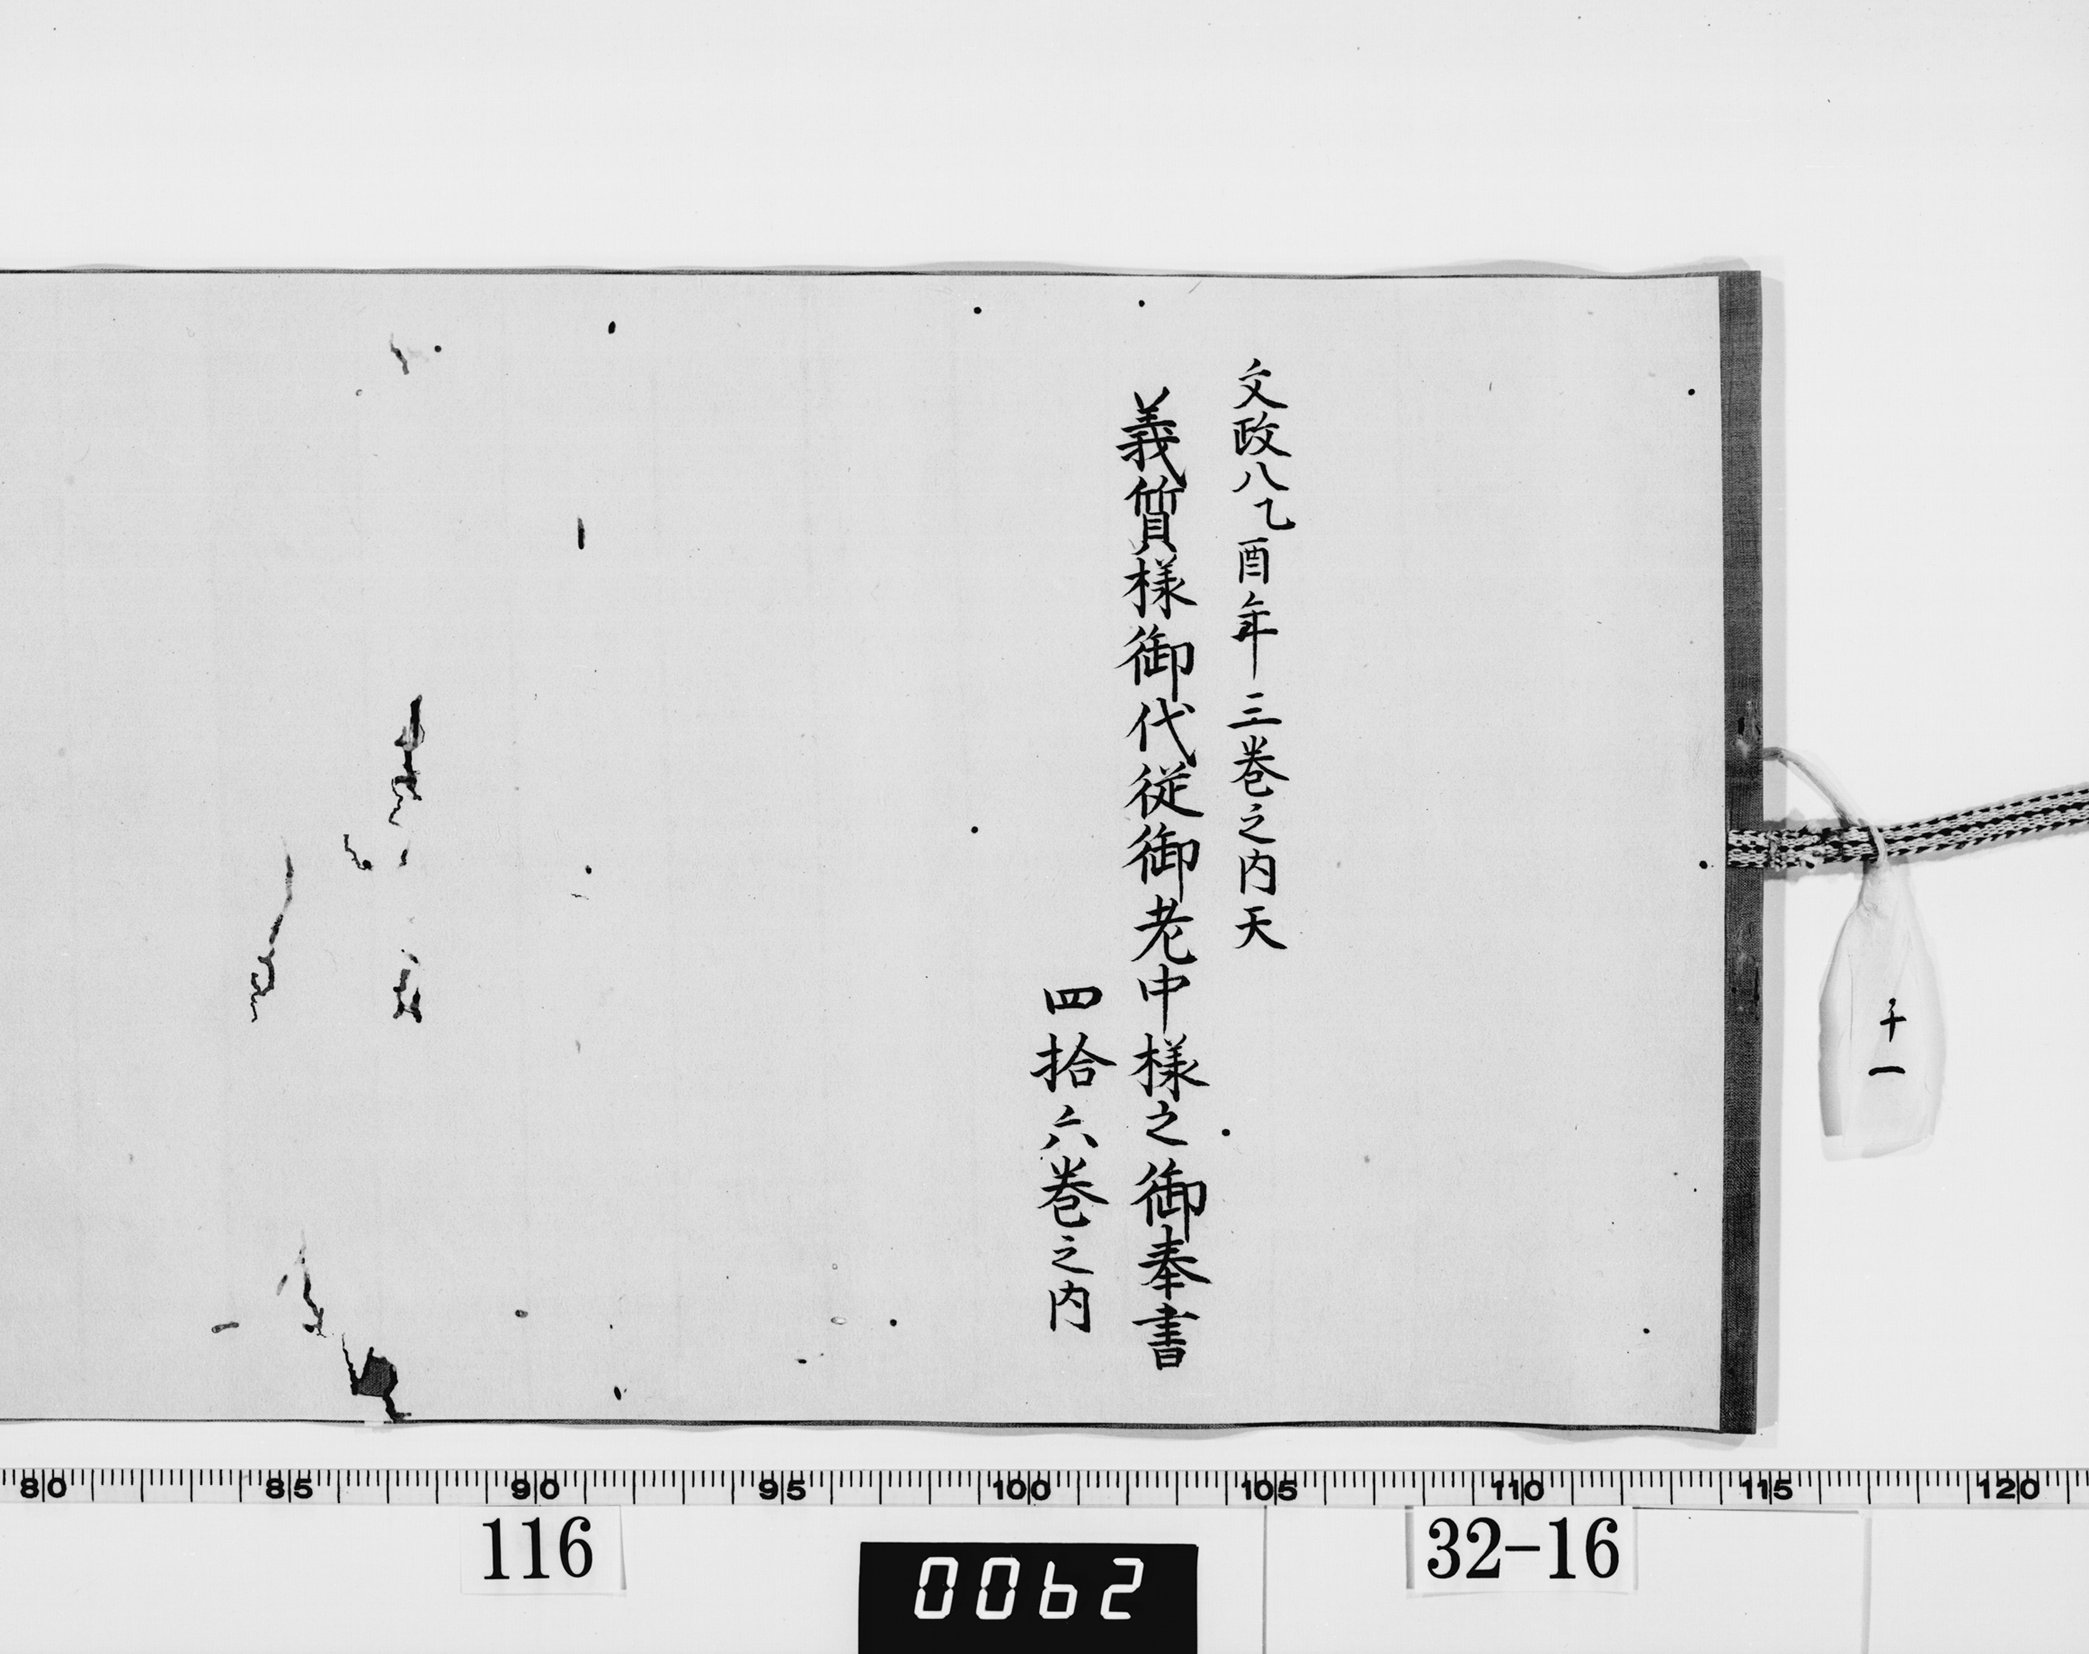 文政八乙酉年三巻之内天
義質様御代従御老中様之御奉書
四拾六巻之内
80 85 90 95 100 105 110 115 120
116
0062
32-16